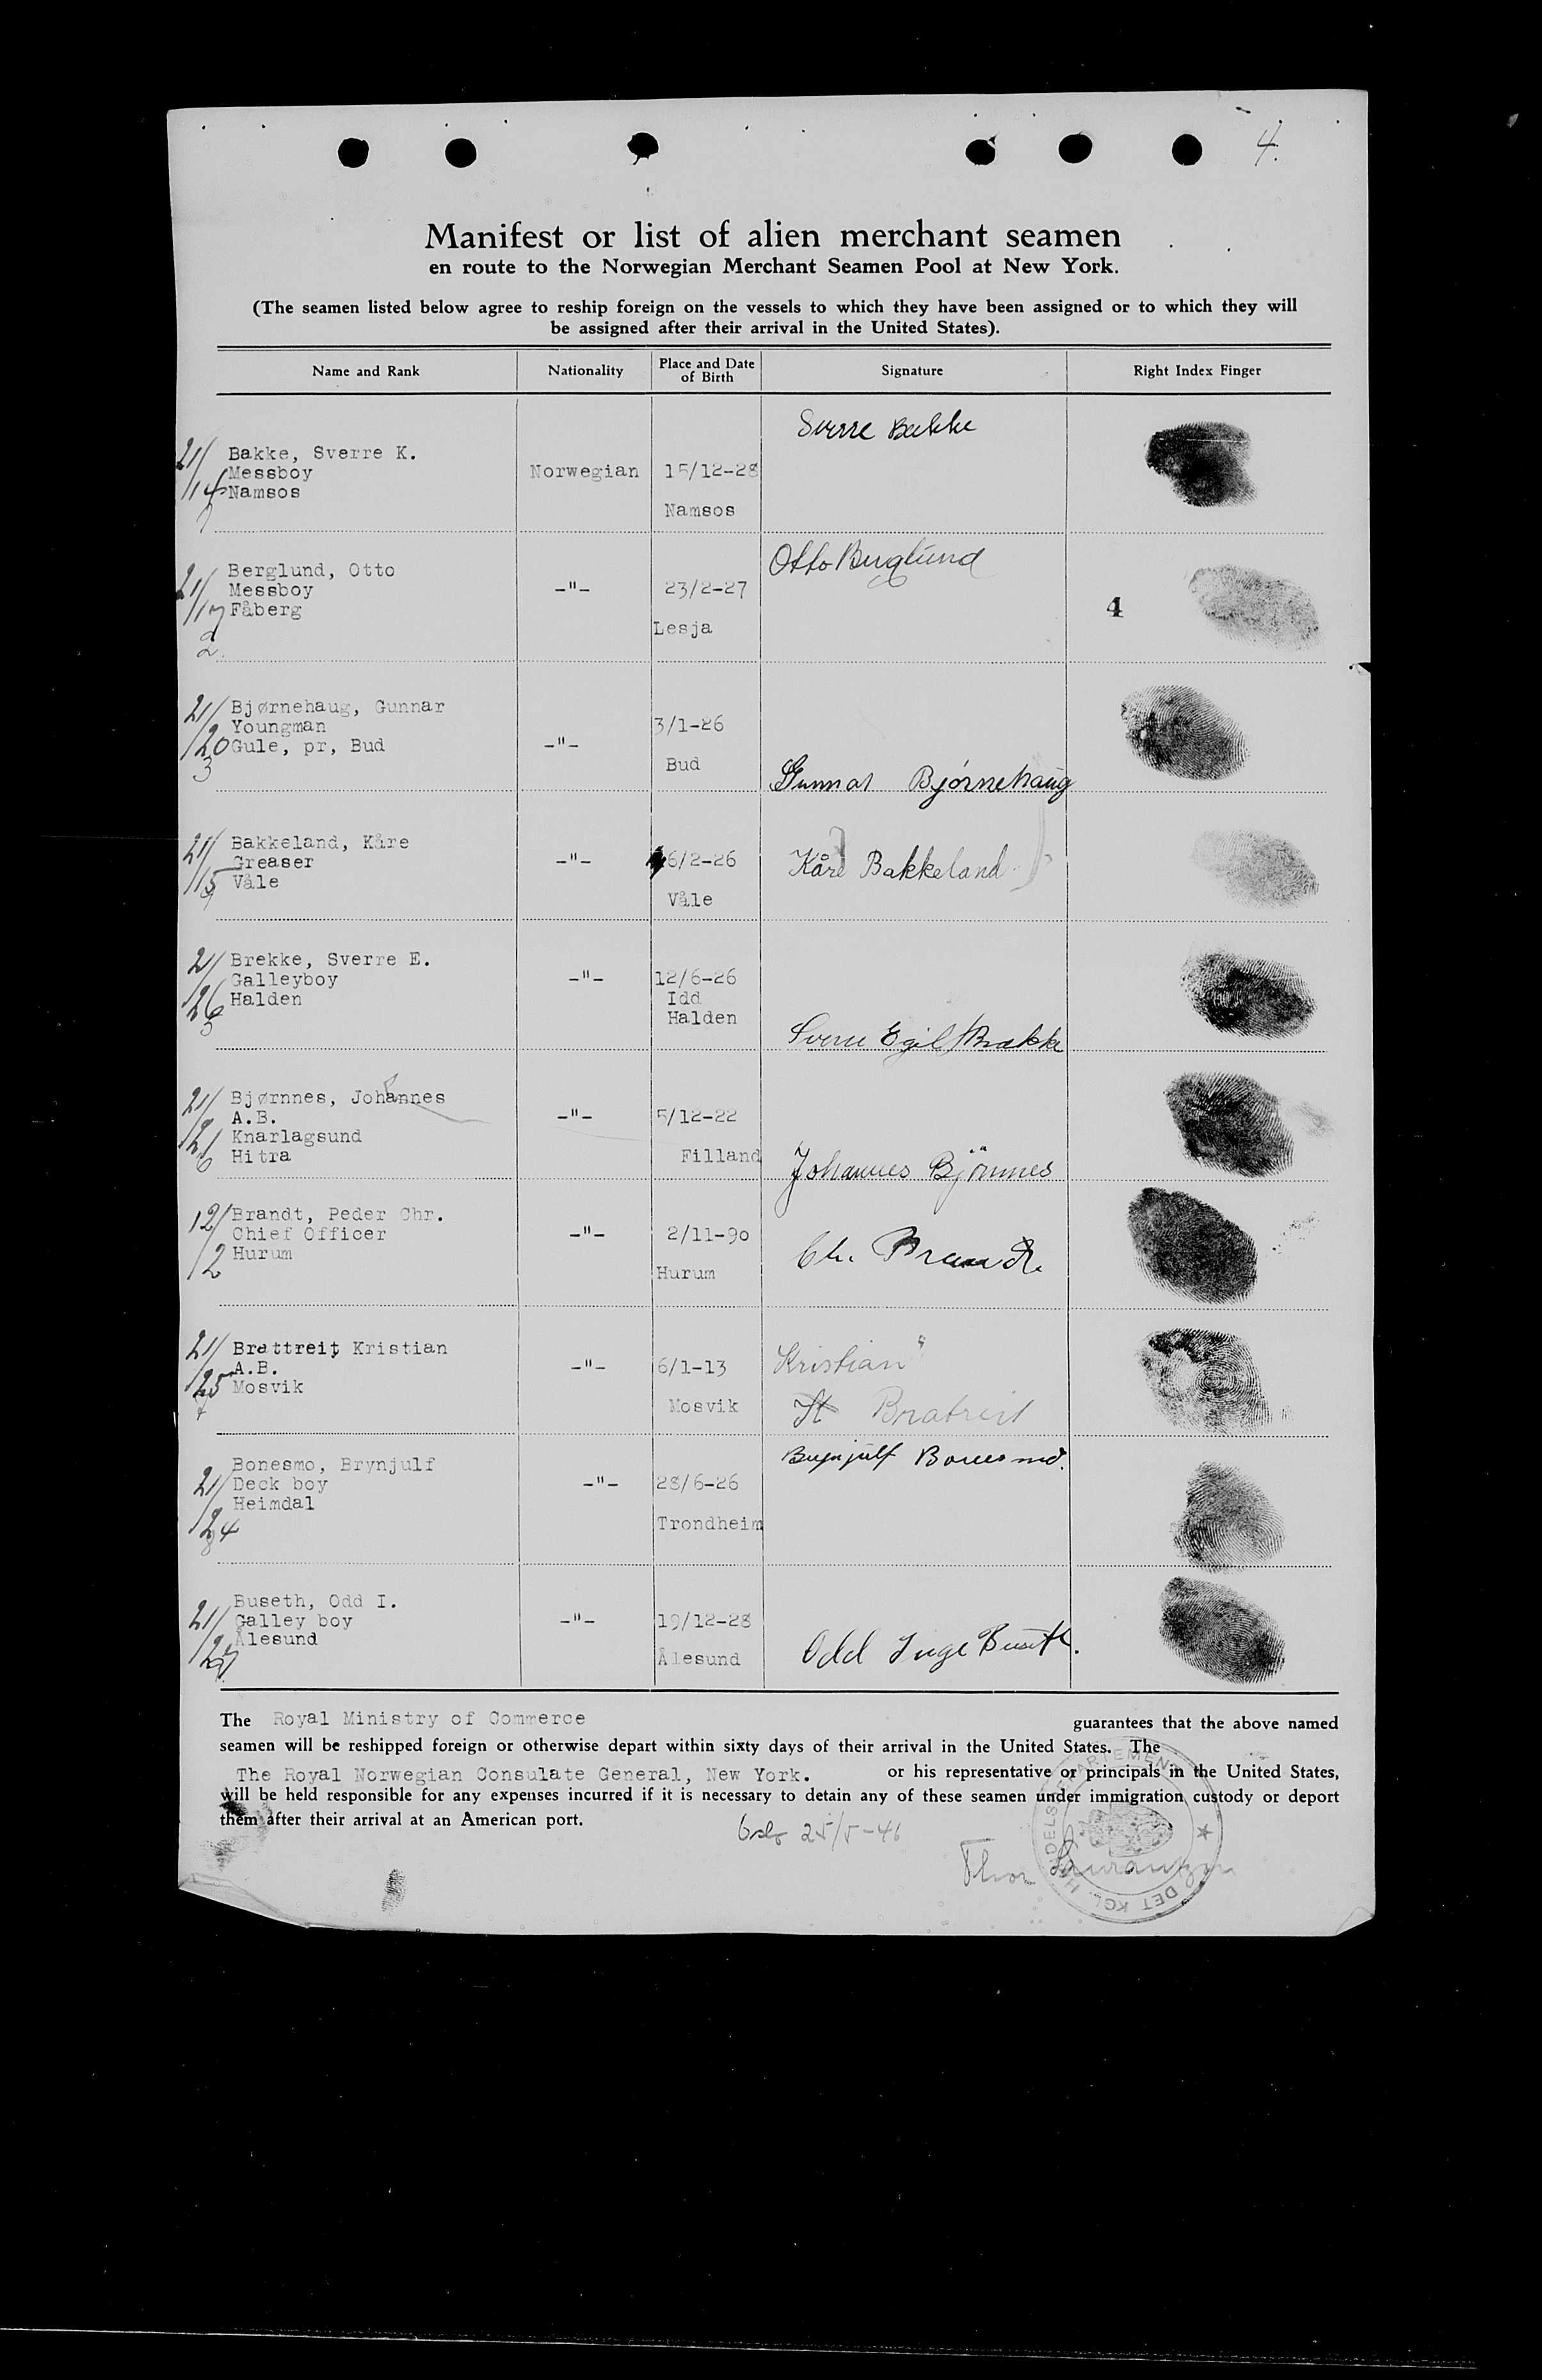 4.
Manifest or list of alien merchant seamen
en route to the Norwegian Merchant Seamen Pool at New York.
(The seamen listed below agree to reship foreign on the vessels to which they have been assigned or to which they will
be assigned after their arrival in the United States).
Name and Rank Nationality Place and Date of Birth Signature Right Index Finger
Sverre Bakke
21/ Bakke, Sverre K.
Messboy Norwegian 15/12-28
/14 Namsos
Namsos
Otto Berglund
21/ Berglund, Otto
Messboy -"- 23/2-27
/17 Fåberg 4
2. Lesja
21/ Bjørnehaug, Gunnar
Youngman 3/1-26
/20 Gule, pr, Bud -"-
3 Bud
Gunnar Bjørnehaug
21/ Bakkeland, Kåre
Greaser -"- 6/2-26 Kåre Bakkeland
/15 Våle
Våle
21/ Brekke, Sverre E.
Galleyboy -"- 12/6-26
/26 Halden Idd
5 Halden
Sverre Egil Brekke
21/ Bjørnnes, Johannes
A.B. -"- 5/12-22
/21 Knarlagsund
6 Hitra Filland Johannes Björnnes
12/ Brandt, Peder Chr.
Chief Officer -"- 2/11-90
/2 Hurum Chr. Brandt
Hurum
21/ Brattreit, Kristian
A.B. -"- 6/1-13 Kristian
/25 Mosvik
Mosvik Bratreit
Bonesmo, Brynjulf Brynjulf Bonesmo.
21/ Deck boy -"- 28/6-26
Heimdal
/24 Trondheim
Buseth, Odd I.
21/ Galley boy -"- 19/12-28
/27 Ålesund
Ålesund Odd Inge Buseth.
The Royal Ministry of Commerce guarantees that the above named
seamen will be reshipped foreign or otherwise depart within sixty days of their arrival in the United States. The
The Royal Norwegian Consulate General, New York. or his representative or principals in the United States,
will be held responsible for any expenses incurred if it is necessary to detain any of these seamen under immigration custody or deport
them after their arrival at an American port.
Oslo 25/5-46
Thor
DET KGL. HANDELSDEPARTEMENT